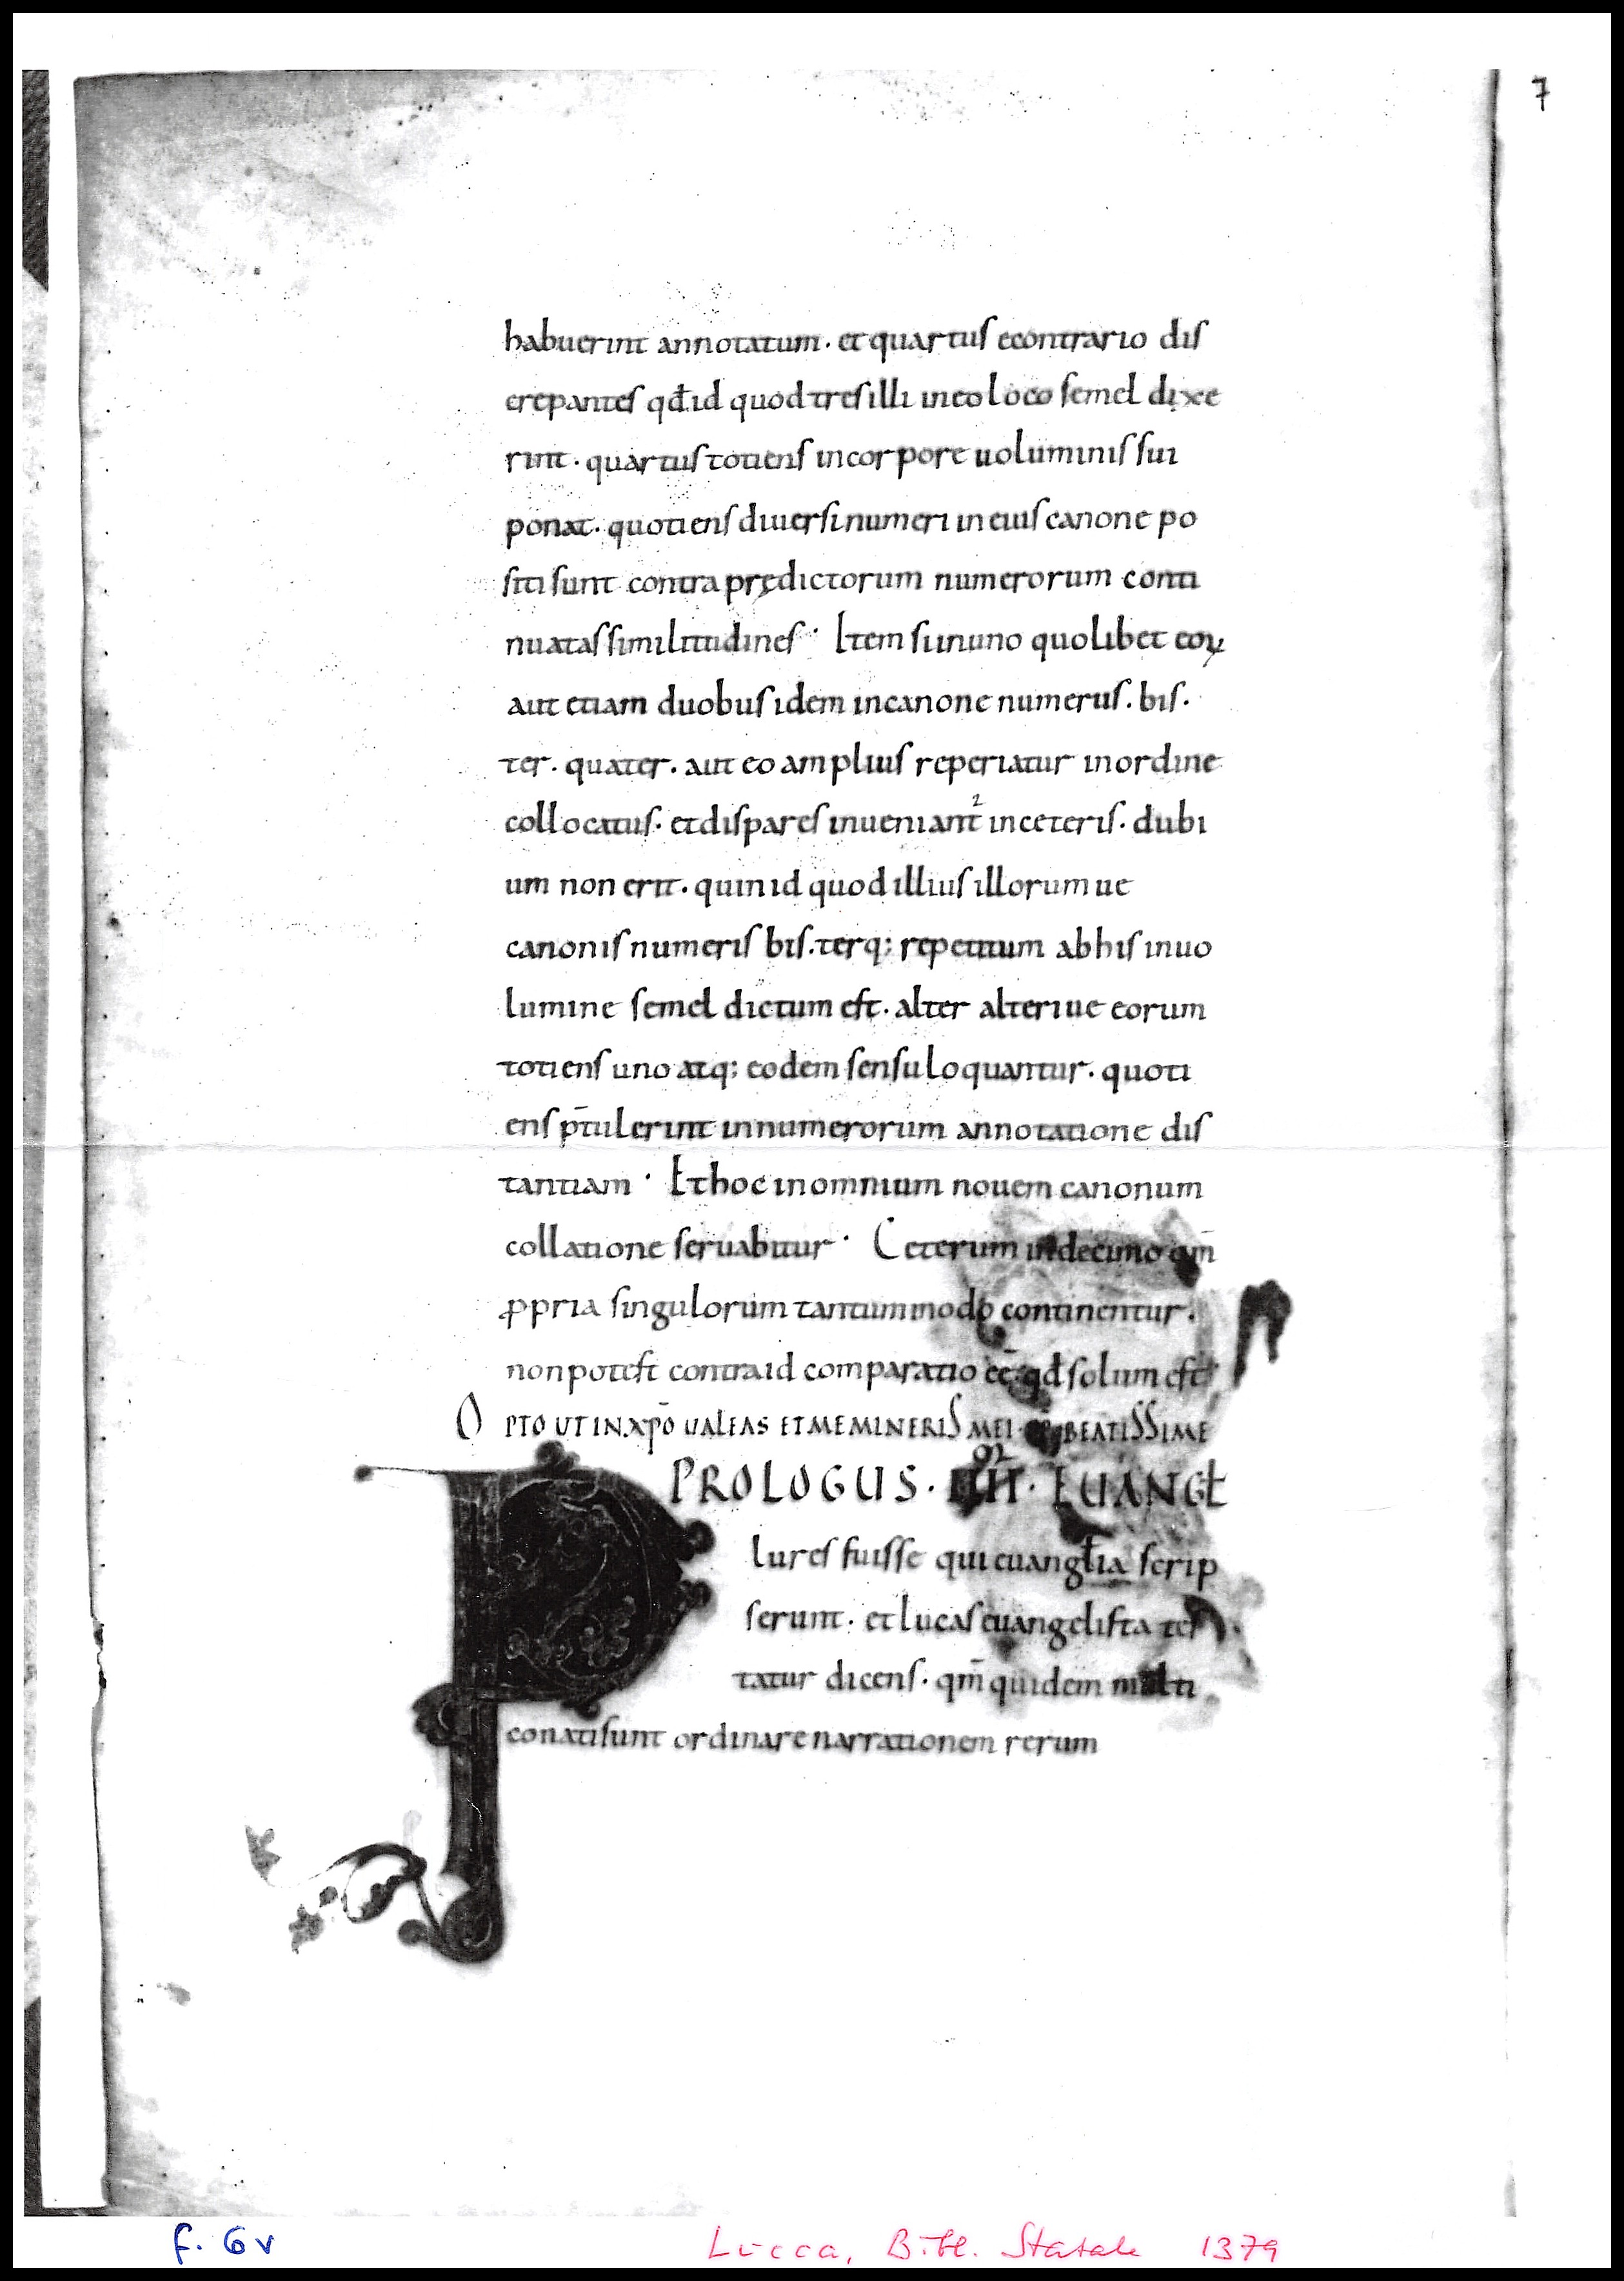 7
habuerint annotatum. et quartus econtrario dis
crepantes qđ id quod tres illi in eo loco semel dixe
rint. quartus totiens in corpore uoluminis sui
ponat. quotiens diuersi numeri in eius canone po
siti sunt contra prędictorum numerorum conti
nuatas similitudines. Item si in uno quolibet eoꝝ
aut etiam duobus idem in canone numerus. bis.
ter. quater. aut eo amplius reperiatur in ordine
collocatus. et dispares inueniant² in ceteris. dubi
um non erit. quin id quod illius illorum ue
canonis numeris bis. terq; repetitum ab his in uo
lumine semel dictum est. alter alteri ue eorum
totiens uno atq; eodem sensu loquantur. quoti
ens p̄tulerint in numerorum annotatione dis
tantiam. Et hoc in omnium nouem canonum
collatione seruabitur. Ceterum in decimo qm̄
ꝓpria singulorum tantummodo continentur.
non potest contra id comparatio eē. qđ solum est
OPTO UT IN XP̄O UALEAS ET MEMINERIS MEI BEATISSIME
PROLOGUS. IIII. EUANGŁ
Plures fuisse qui euangłia scrip
serunt. et lucas euangelista tes
tatur dicens. qm̄ quidem multi
conati sunt ordinare narrationem rerum
f. 6v
Lucca, Bibl. Statale 1379